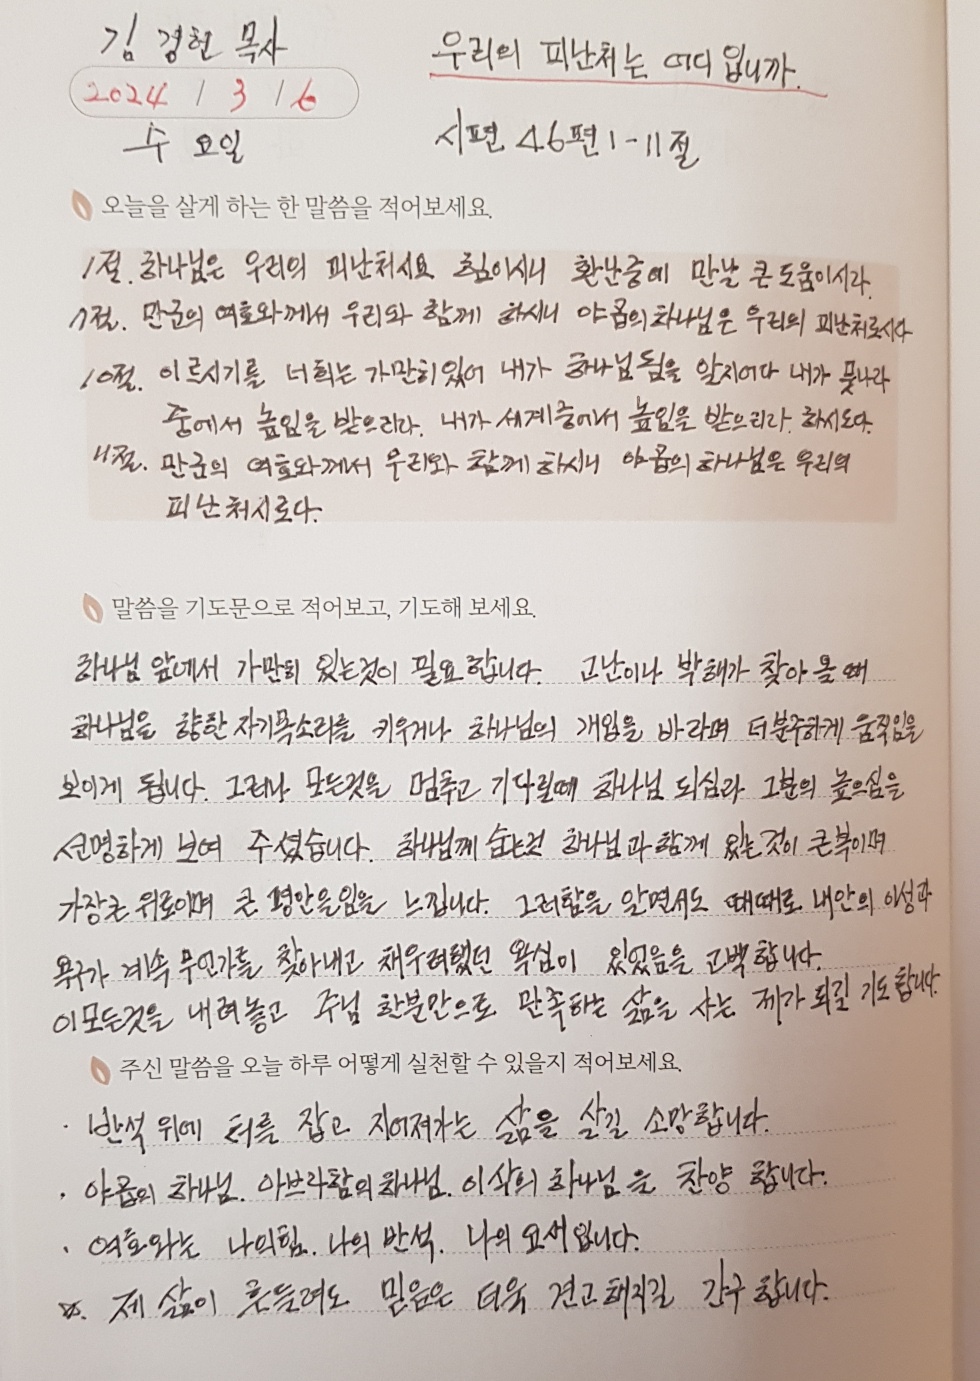 김 경헌 목사
우리의 피난처는 어디 입니까.
2024 / 3 / 6
수 요일
시편 46편 1-11절
오늘을 살게 하는 한 말씀을 적어보세요.
1절. 하나님은 우리의 피난처시요 힘이시니 환난중에 만날 큰 도움이시라.
7절. 만군의 여호와께서 우리와 함께 하시니 야곱의 하나님은 우리의 피난처로시다
10절. 이르시기를 너희는 가만히 있어 내가 하나님 됨을 알지어다 내가 뭇나라
중에서 높임을 받으리라. 내가 세계중에서 높임을 받으리라. 하시도다.
11절. 만군의 여호와께서 우리와 함께 하시니 야곱의 하나님은 우리의
피난처시로다.
말씀을 기도문으로 적어보고, 기도해 보세요.
하나님 앞에서 가만히 있는것이 필요 합니다. 고난이나 박해가 찾아 올 때
하나님을 향한 자기목소리를 키우거나 하나님의 개입을 바라며 더 분주하게 움직임을
보이게 됩니다. 그러나 모든것을 멈추고 기다릴때 하나님 되심과 그분의 높으심을
선명하게 보여 주셨습니다. 하나님께 숨는것 하나님과 함께 있는 것이 큰 복이며
가장큰 위로이며 큰 평안을임을 느낍니다. 그러함을 알면서도 때때로 내안의 이성과
욕구가 계속 무언가를 찾아내고 채우려했던 욕심이 있었음을 고백 합니다.
이 모든것을 내려놓고 주님 한분만으로 만족하는 삶을 사는 제가 되길 기도 합니다.
주신 말씀을 오늘 하루 어떻게 실천할 수 있을지 적어보세요.
· 반석 위에 터를 잡고 지어져가는 삶을 살길 소망합니다.
· 야곱의 하나님. 아브라함의 하나님. 이삭의 하나님을 찬양 합니다.
· 여호와는 나의 힘. 나의 반석. 나의 요새 입니다.
☆. 제 삶이 흔들려도 믿음은 더욱 견고해지길 간구 합니다.